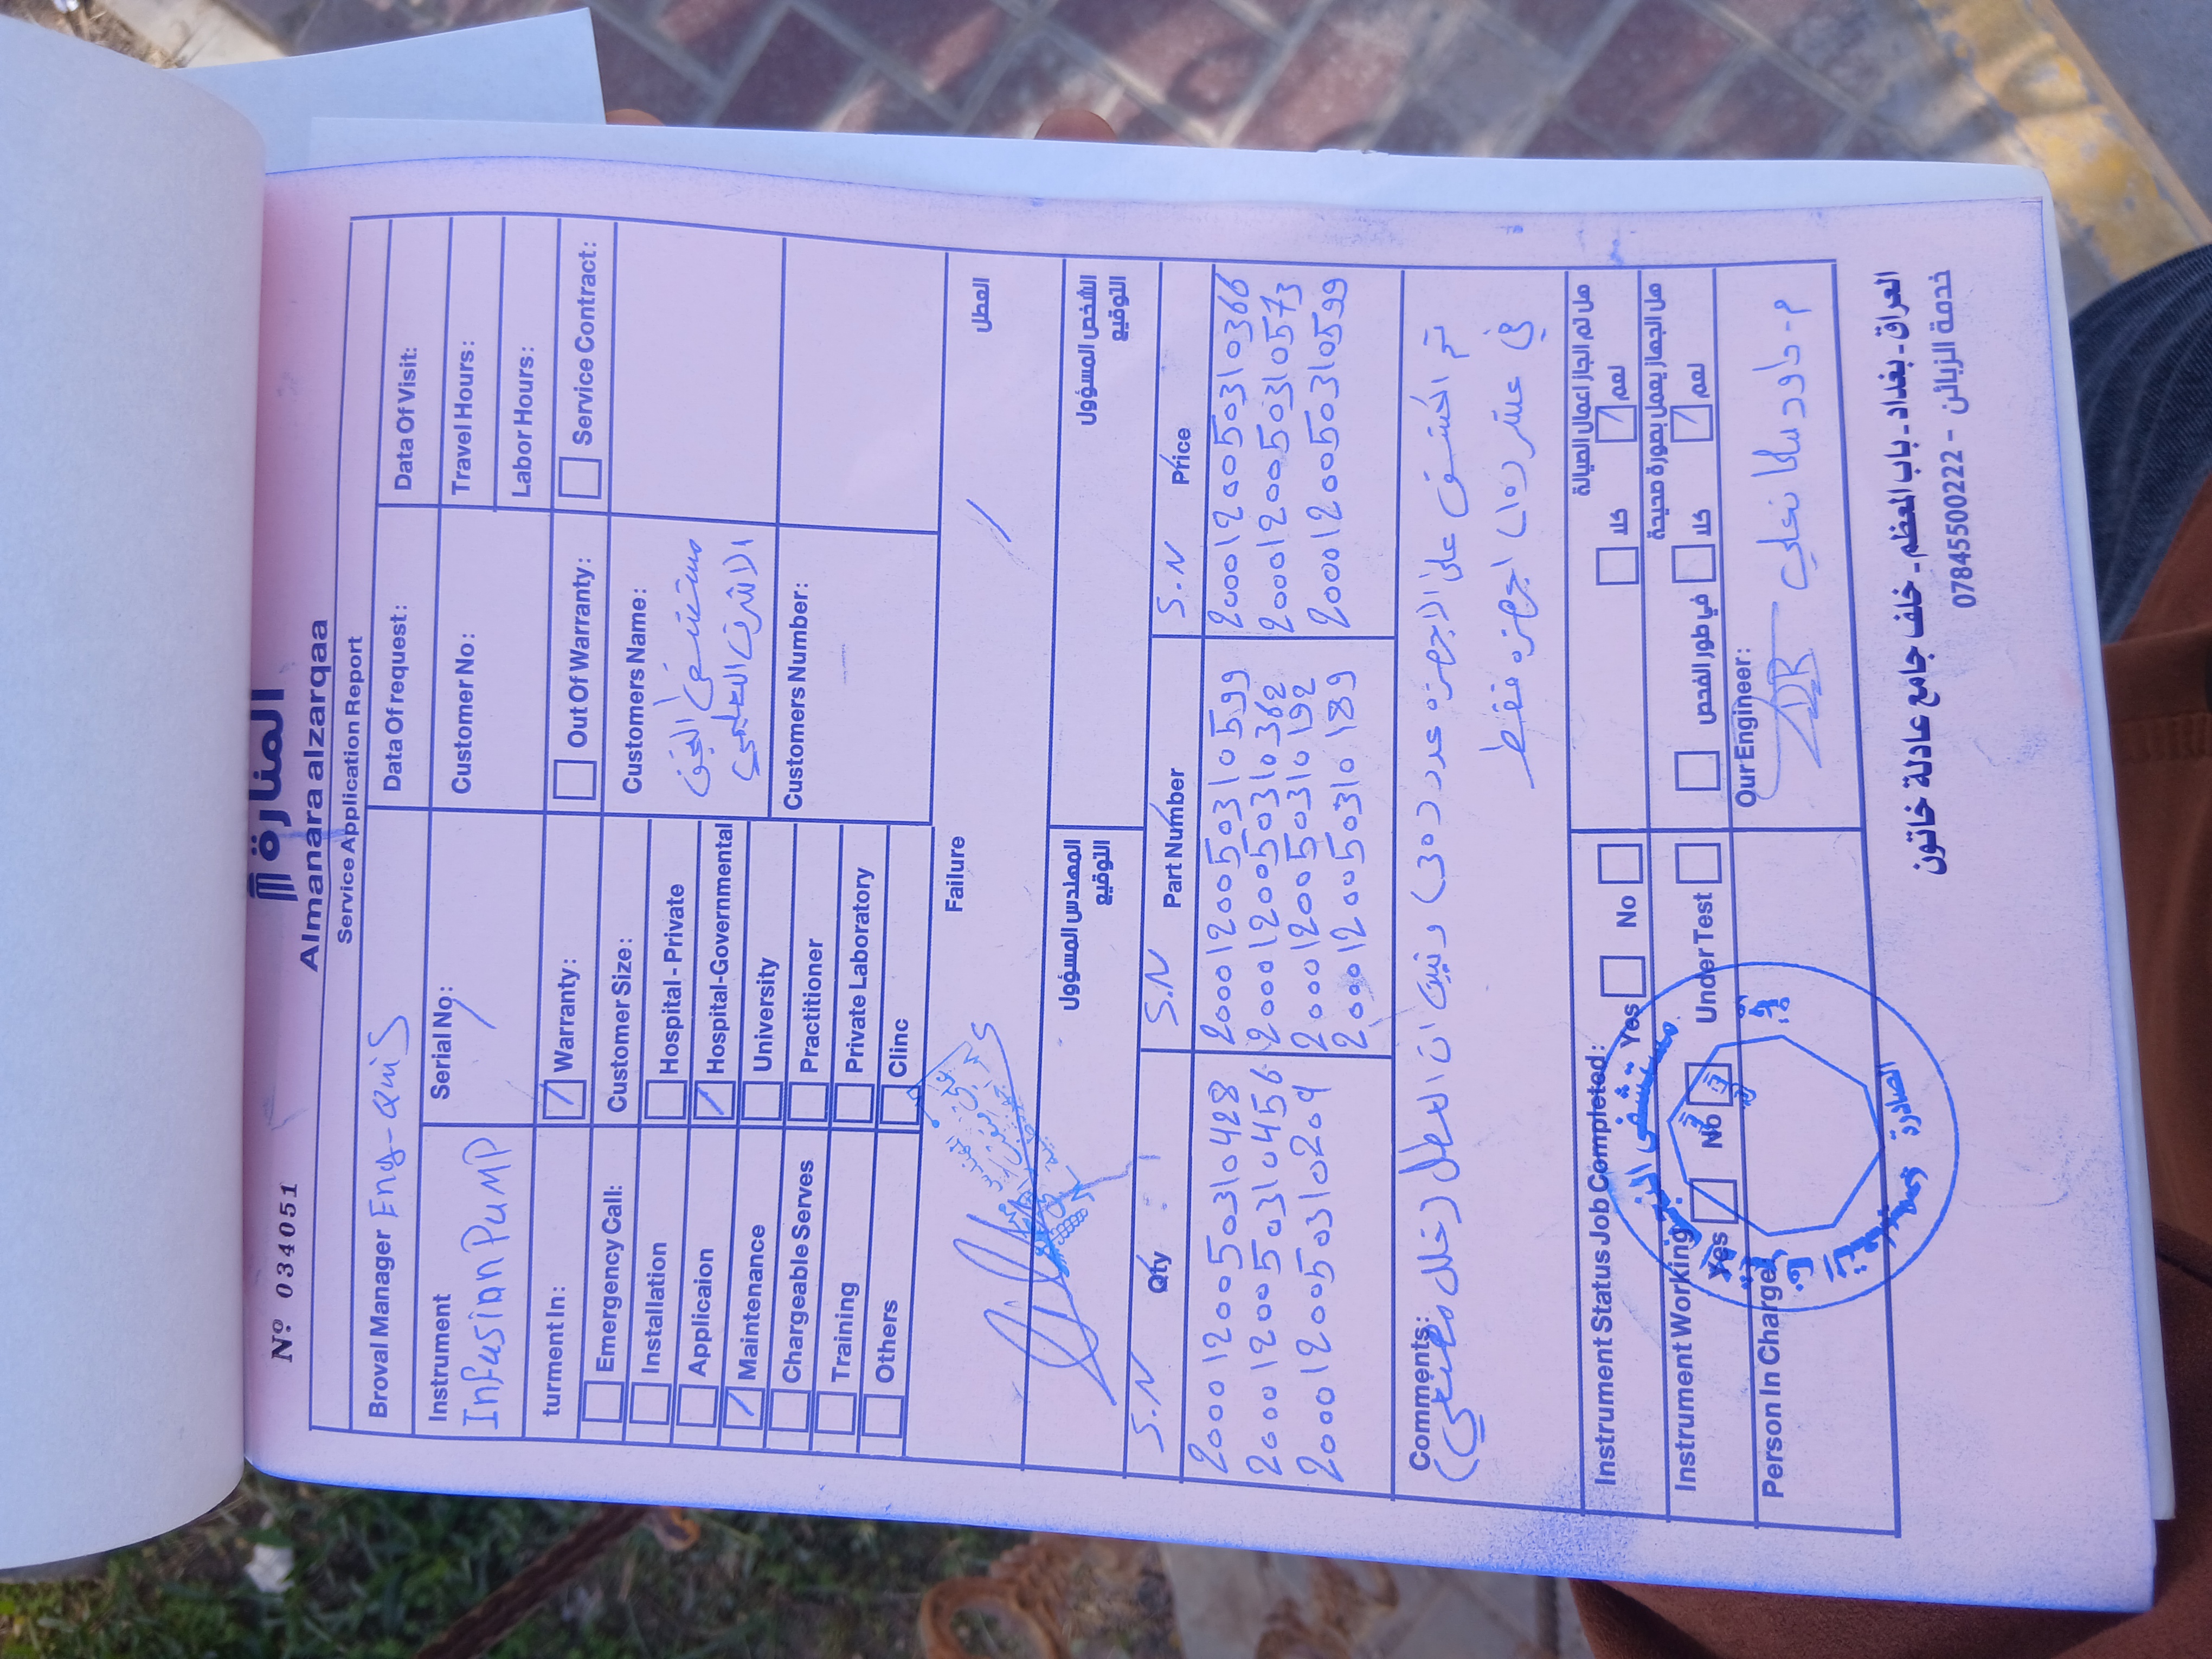 Nº 034051
المنارة
Almanara alzarqaa
Service Application Report
Broval Manager Eng-QaiS
Data Of request:
Data Of Visit:
Instrument
Infusian PuMP
Serial No:
Customer No:
Travel Hours:
Labor Hours:
turment In:
Warranty:
Out Of Warranty:
Service Contract:
Emergency Call:
Customer Size:
Customers Name:
مستشفى النجف
الاشرف التعليمي
Installation
Hospital - Private
Applicaion
Hospital-Governmental
Maintenance
University
Chargeable Serves
Practitioner
Customers Number:
Training
Private Laboratory
Others
Clinc
Failure
العطل
المهندس المسؤول
التوقيع
الشخص المسؤول
التوقيع
S.N Qty
S.N Part Number
S.N Price
2000120050310428
2000120050310599
2000120050310366
2000120050310456
2000120050310362
2000120050310573
2000120050310204
2000120050310192
2000120050310599
2000120050310189
Comments:
تم الكشف على الاجهزة عدد (30) وتبين ان العطل (خلل مصنعي)
في عشر (10) اجهزة فقط
Instrument Status Job Completed: Yes No
هل تم انجاز اعمال الصيانة
كلا نعم
Instrument Working Yes No Under Test
هل الجهاز يعمل بصورة صحيحة
في طور الفحص كلا نعم
Person In Charge
Our Engineer:
م. داود
العراق - بغداد - باب المعظم - خلف جامع عادلة خاتون
خدمة الزبائن - 07845500222